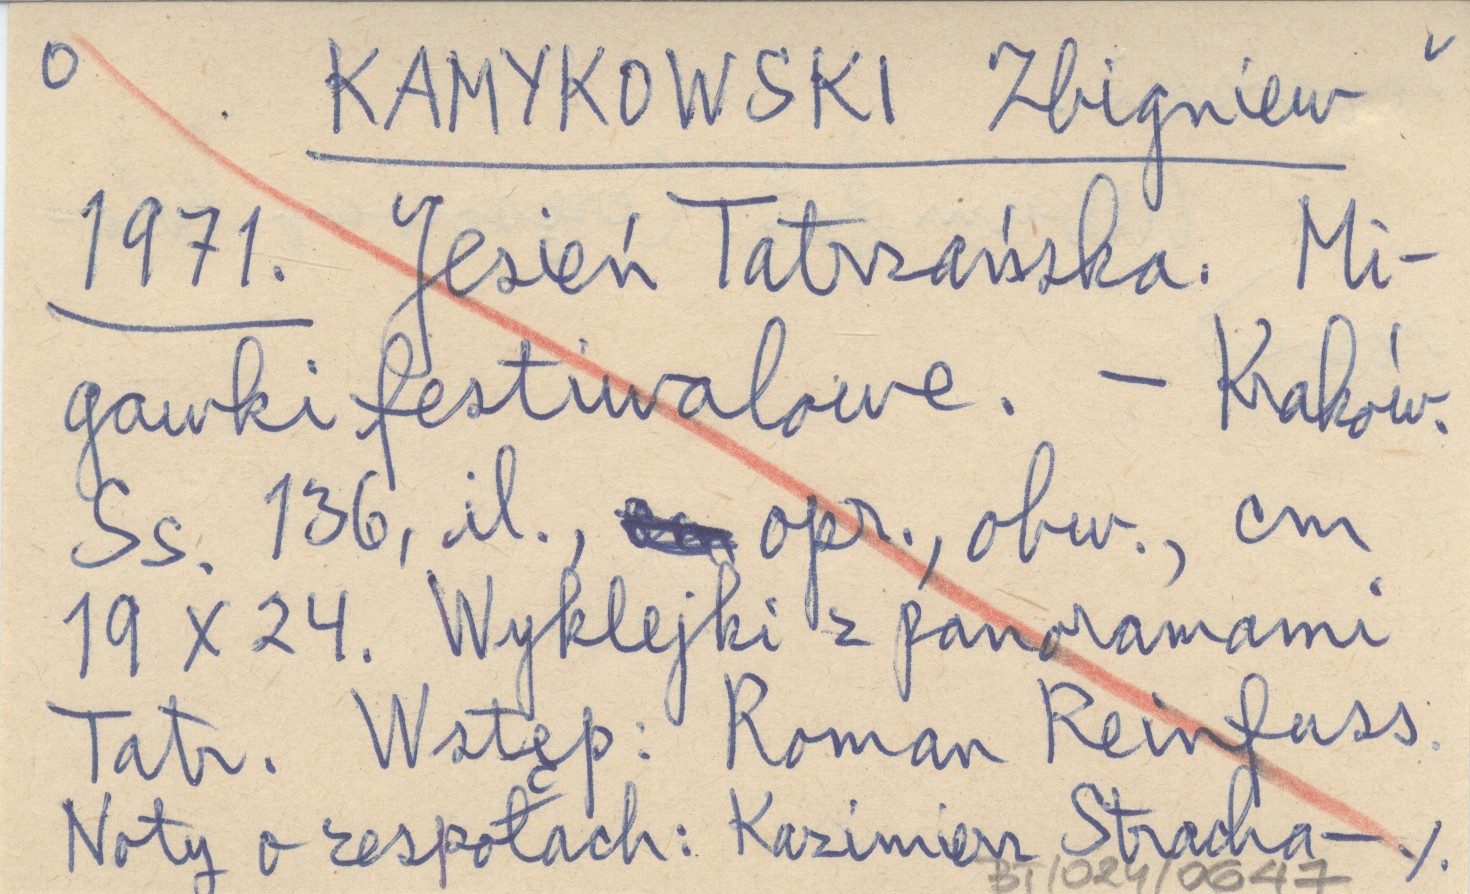 o KAMYKOWSKI Zbigniew v
1971. Jesień Tatrzańska. Mi-
gawki festiwalowe. - Kraków.
Ss. 136, il., opr., obw., cm
19 x 24. Wyklejki z panoramami
Tatr. Wstęp: Roman Reinfuss.
Noty o zespołach: Kazimierz Stracha- ./.
BT/024/0647